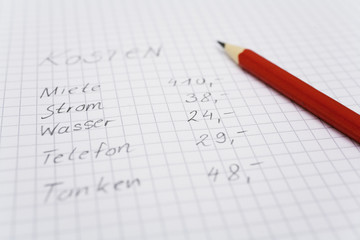 Kosten
Miete 410,-
Strom 38,-
Wasser 24,-
Telefon 29,-
Tanken 48,-